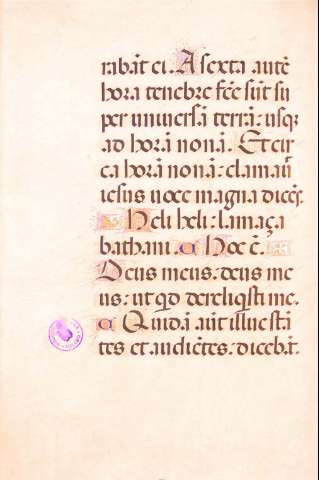 rabāt ei. A sexta autē
hora tenebre fcē sūt su
per uniuersā terrā: usq;
ad horā nonā. Et cir
ca horā nonā: clamauī
iesus uoce magna dicēs.
Heli heli: lamaça
bathani. Hoc ē.
Deus meus: deus me
us: ut qd dereliqsti me.
Quidā aūt illuc stā
tes et audiētes: dicebāt.